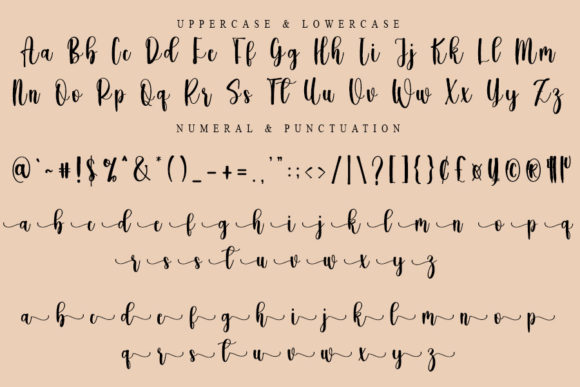 UPPERCASE & LOWERCASE
Aa Bb Cc Dd Ee Ff Gg Hh Ii Jj Kk Ll Mm
Nn Oo Pp Qq Rr Ss Tt Uu Vv Ww Xx Yy Zz
NUMERAL & PUNCTUATION
@`~#!$%^&*()_-+=.,'":;<>/|\?[]{}¢£¤¥©®¶
a b c d e f g h i j k l m n o p q
r s s t u v w x y z
a b c d e f g h i j k l m n o p
q r s t u v w x y z